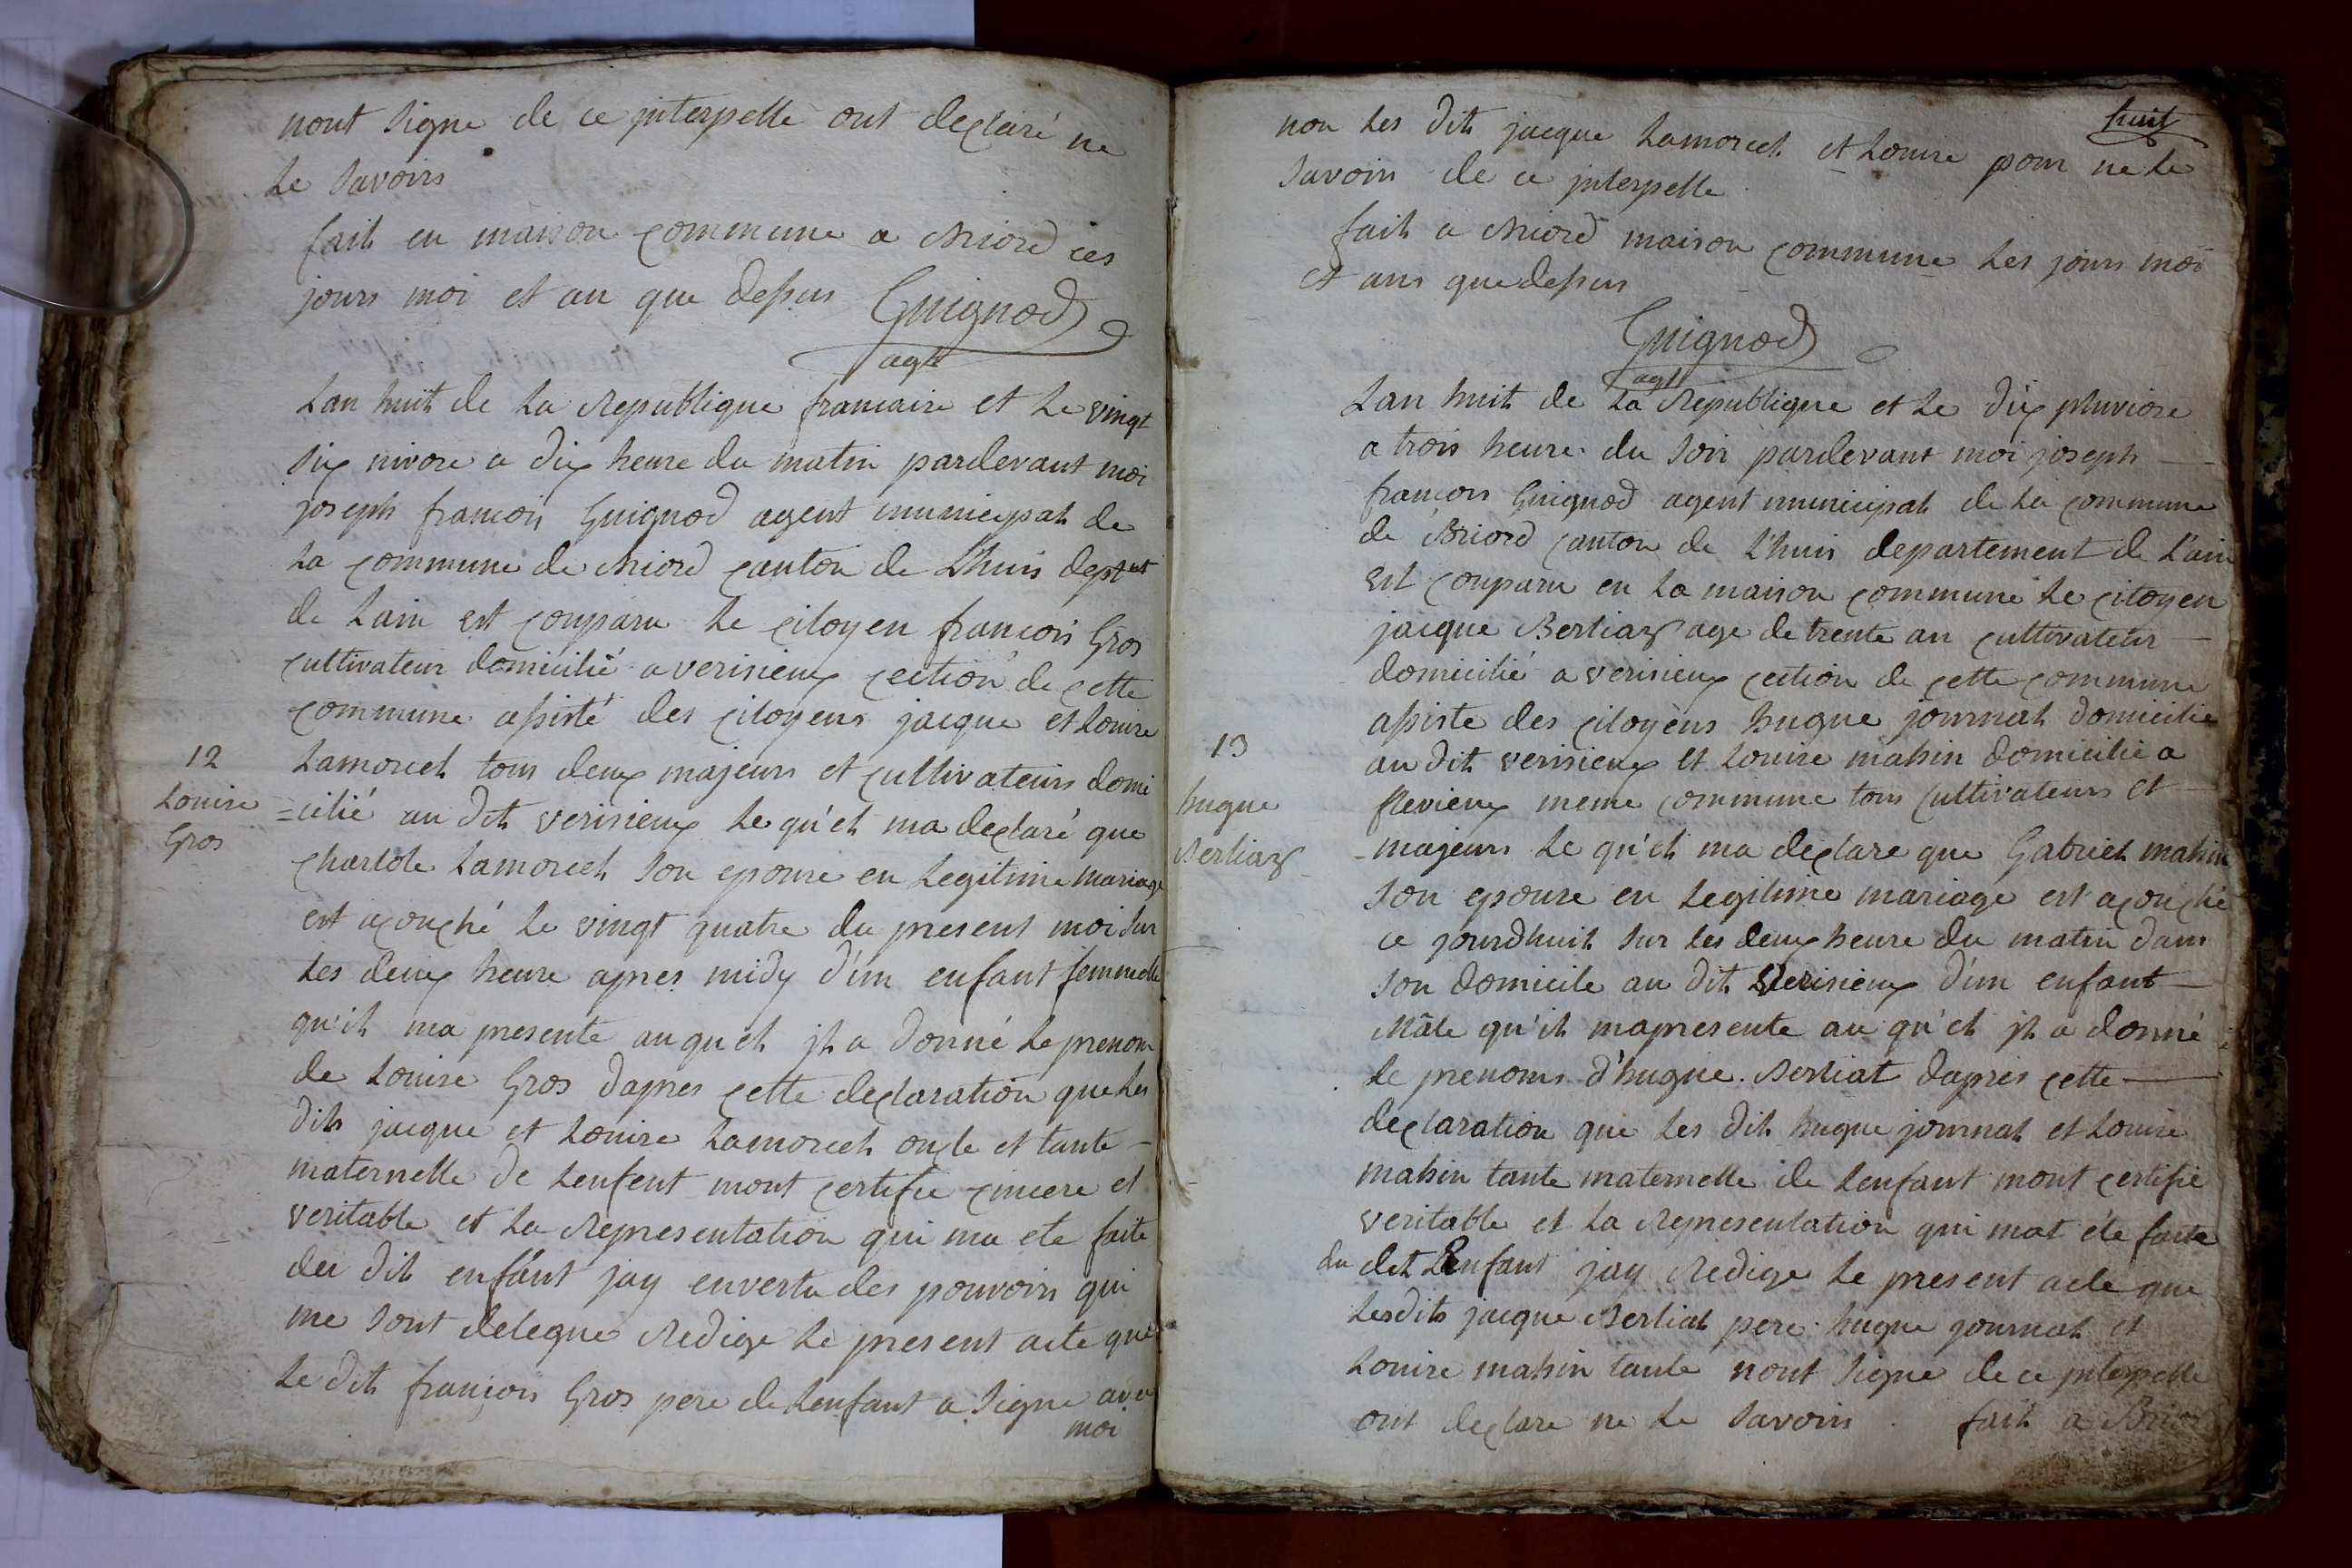 nont signe de ce jnterpelle ont declaré ne
le savoirs
fait en maison commune a Briord ces
jours moi et an que dessus Guignod
agt
Lan huit de la Republique francaise et le vingt
six nivose a dix heure du matin pardevant moi
joseph francois Guignod agent municipal de
la commune de Briord canton de Lhuis deptmt
de Lain est conparu le citoyen francois Gros
cultivateur domicilié a verisieux cection de cette
commune assisté des citoyens jacque et Louise
12
Louise
Gros
Lamorel tous deux majeurs et cultivateurs domi
=cilié au dit verisieux le qu'el ma declaré que
Charlote Lamorel son epouse en legitime mariage
est acouché le vingt quatre du present moi sur
les deux heure apres midy d'un enfant femmelle
qu'il ma presente auquel jl a donné le prenom
de Louise Gros dapres cette declaration que les
dits jacque et Louise Lamorel oncle et tante
maternelle de lenfent mont certifie cincere et
veritable et la Representation qui ma ete faite
du dit enfant jay envertu des pouvoirs qui
me sont delegue Redige le present acte que
le dit francois Gros pere de lenfant a signe avec
moi
huit
non les dits jacque Lamorel et Louise pour ne le
savoir de ce jnterpelle
fait a Briord maison commune les jours moi
et ans que dessus
Guignod
agt
Lan huit de la Republique et le dix pluviose
a trois heure du soir pardevant moi joseph
francois Guignod agent municipal de la commune
de Briord canton de L'huis departement de L'ain
est conparu en la maison commune le citoyen
jacque Berliaz age de trente an cultivateur
domicilié a verisieux cection de cette commune
assiste des citoyens hugue journal domicilie
13
hugue
Berliaz
au dit verisieux et Louise massin domicilie a
flevieux meme commune tous cultivateurs et
majeurs le qu'el ma declare que Gabriel massin
son epouse en legitime mariage est acouché
ce jourdhuit sur les deux heure du matin dans
son domicile au dit Verisieux d'un enfant
Mâle qu'il mapresente au qu'el jl a donné
le prenoms d'hugue. Berliat dapres cette
declaration que les dit hugue journal et Louise
massin tante maternelle de lenfant mont certifié
veritable et la Representation qui mat été faite
du dit Enfant jay Redige le present acte que
lesdits jacque Berliat pere hugue journal et
Louise massin tante nont signe de ce jnterpelle
ont declare ne le savoirs. fait a Briord